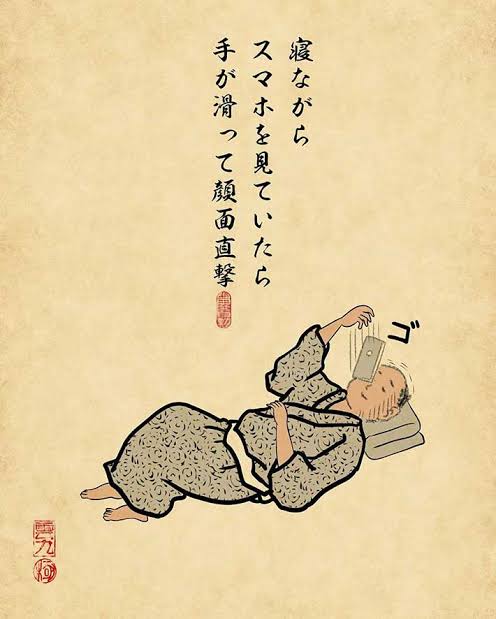 寝ながら
スマホを見ていたら
手が滑って顔面直撃
ゴ